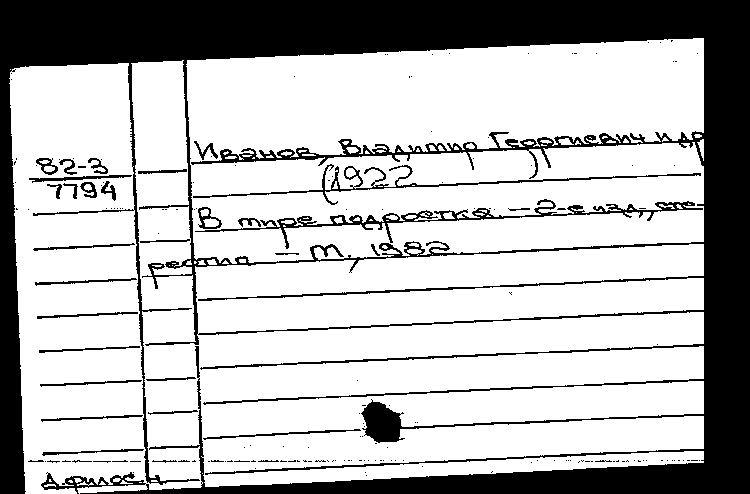 Иванов, Владимир Георгиевич и др
82-3
7794
(1922 )
В мире подростка. – 2-е изд., сте-
реотип – М., 1982
Д.филос.н